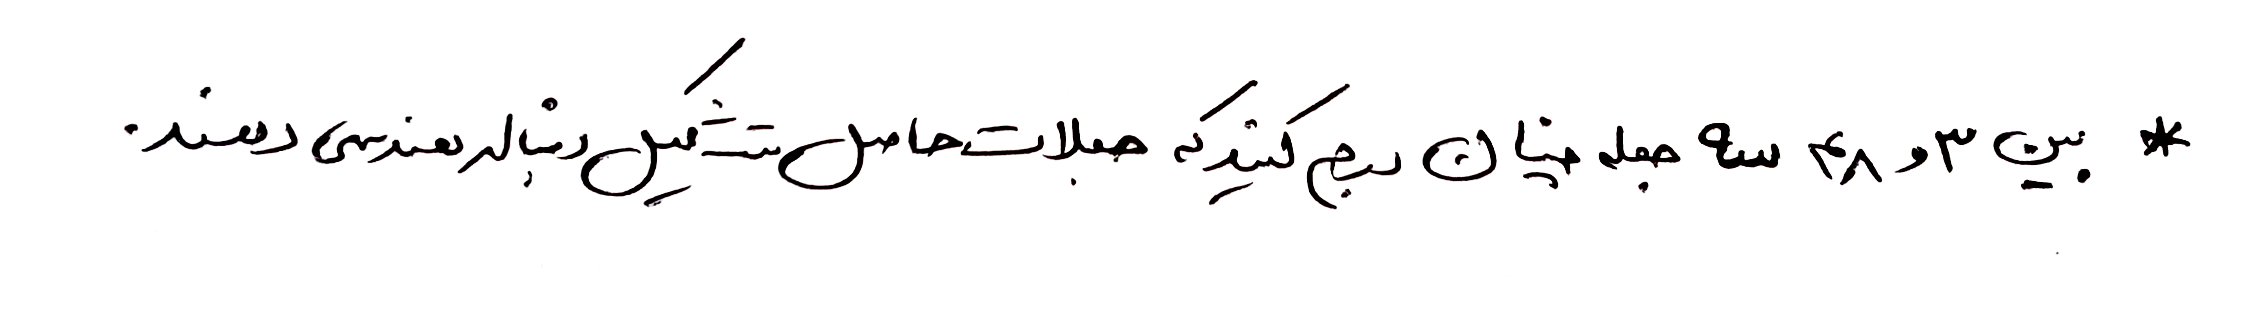 * بین ۳ و ۴۸ سه جمله چنان درج کنید که جملات حاصل تشکیل دنباله هندسی دهند.